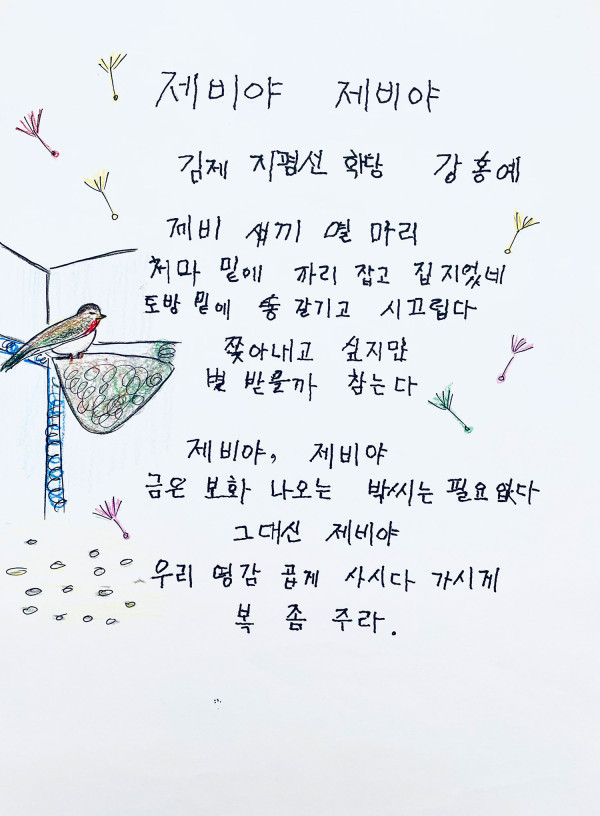 제비야 제비야
김제 지평선 학당 강홍예
제비 새끼 열 마리
처마 밑에 자리 잡고 집 지었네
토방 밑에 똥 갈기고 시끄럽다
쫓아내고 싶지만
벌 받을까 참는다
제비야, 제비야
금은 보화 나오는 박씨는 필요 없다
그대신 제비야
우리 영감 곱게 사시다 가시게
복 좀 주라.